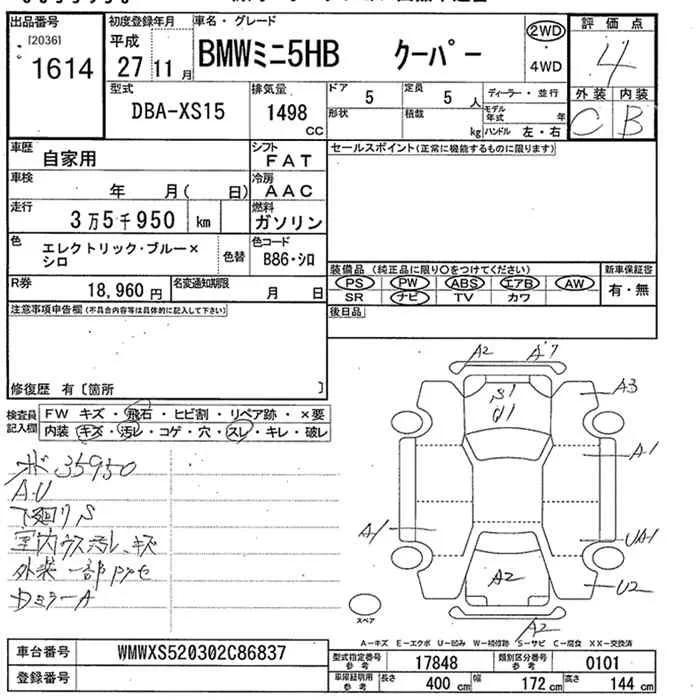 出品番号 [2036] 1614
初度登録年月 平成 27 11 月
車名・グレード BMWミニ5HB クーパー
2WD・4WD
評価点 4
外装 C 内装 B
型式 DBA-XS15
排気量 1498 CC
ドア 5
定員 5 人
ディーラー・並行
形状
積載 kg
モデル年式 年
ハンドル 左・右
車歴 自家用
シフト FAT
セールスポイント(正常に機能するものに限ります)
車検 年 月( 日)
冷房 AAC
走行 3万5千950 km
燃料 ガソリン
色 エレクトリック・ブルー×シロ
色替
色コード B86・シロ
装備品 (純正品に限り○をつけてください)
新車保証書 有・無
PS PW ABS エアB AW
SR ナビ TV カワ
R券 18,960円
名変通知期限 月 日
後日品
注意事項申告欄(不具合内容等は具体的に記入して下さい)
修復歴 有〔箇所 〕
検査員記入欄
FW キズ・飛石・ヒビ割・リペア跡・×要
内装・キズ・汚レ・コゲ・穴・スレ・キレ・破レ
35950
A.U
下廻りS
室内ウス汚レ、キズ
外装一部
DミラーA
A2 A7
S1
A3
A1
A1
UA1
U2
A2
A2
スペア
A-キズ E-エクボ U-凹み W-補修跡 S-サビ C-腐食 XX-交換済
車台番号 WMWXS520302C86837
登録番号
型式指定番号 参考 17848
類別区分番号 参考 0101
車庫証明用 参考 長さ 400 cm 幅 172 cm 高さ 144 cm